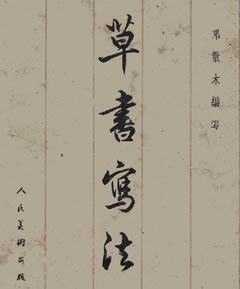 邓散木编写
草书写法
人民美术出版